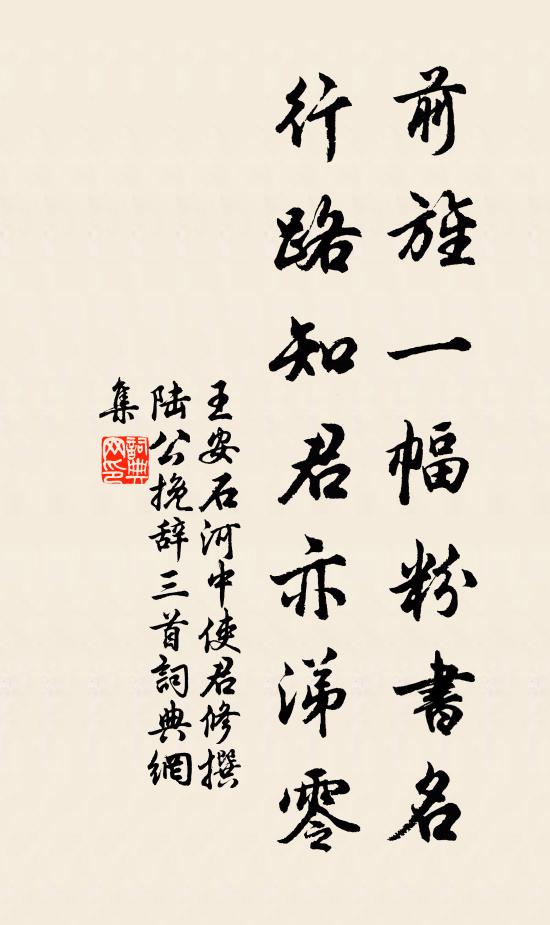 前旌一幅粉書名
行路知君亦涕零
王安石河中使君修撰
陆公挽辞三首詞典網
集
詞典網印